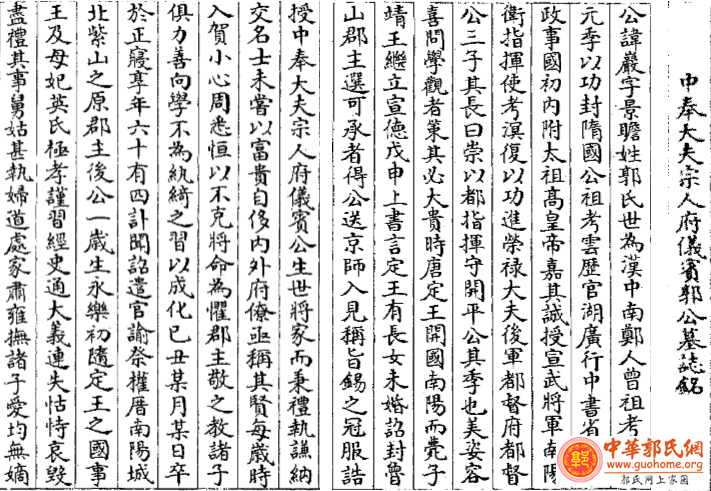 中奉大夫宗人府儀賓郭公墓誌銘
公諱巖字景瞻姓郭氏世為漢中南鄭人曾祖考
元季以功封隋國公祖考雲歷官湖廣行中書省
政事國初內附太祖高皇帝嘉其誠授宣武將軍南陽
衛指揮使考溟復以功進榮祿大夫後軍都督府都督
公三子其長曰崇以都指揮守開平公其季也美姿容
喜問學觀者策其必大貴時唐定王開國南陽而薨子
靖王繼立宣德戊申上書言定王有長女未婚詔封魯
山郡主選可承者得公送京師入見稱旨錫之冠服誥
授中奉大夫宗人府儀賓公生世將家而秉禮執謙納
交名士未嘗以富貴自侈內外府僚亟稱其賢每歲時
入賀小心周悉恒以不克將命為懼郡主敬之教諸子
俱力善向學不為紈綺之習以成化己丑某月某日卒
於正寢享年六十有四訃聞詔遣官諭祭權厝南陽城
北紫山之原郡主後公一歲生永樂初隨定王之國事
王及母妃英氏極孝謹習經史通大義連失怙恃哀毀
盡禮其事舅姑甚執婦道處家肅雍撫諸子愛均無嫡
中華郭氏網
www.guohome.org
郭氏网上家园